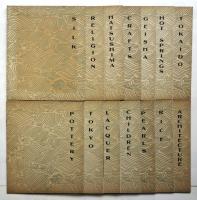 SILK
RELIGION
MATSUSHIMA
CRAFTS
GEISHA
HOT SPRINGS
TOKAIDO
POTTERY
TOKYO
LACQUER
CHILDREN
PEARLS
RICE
ARCHITECTURE